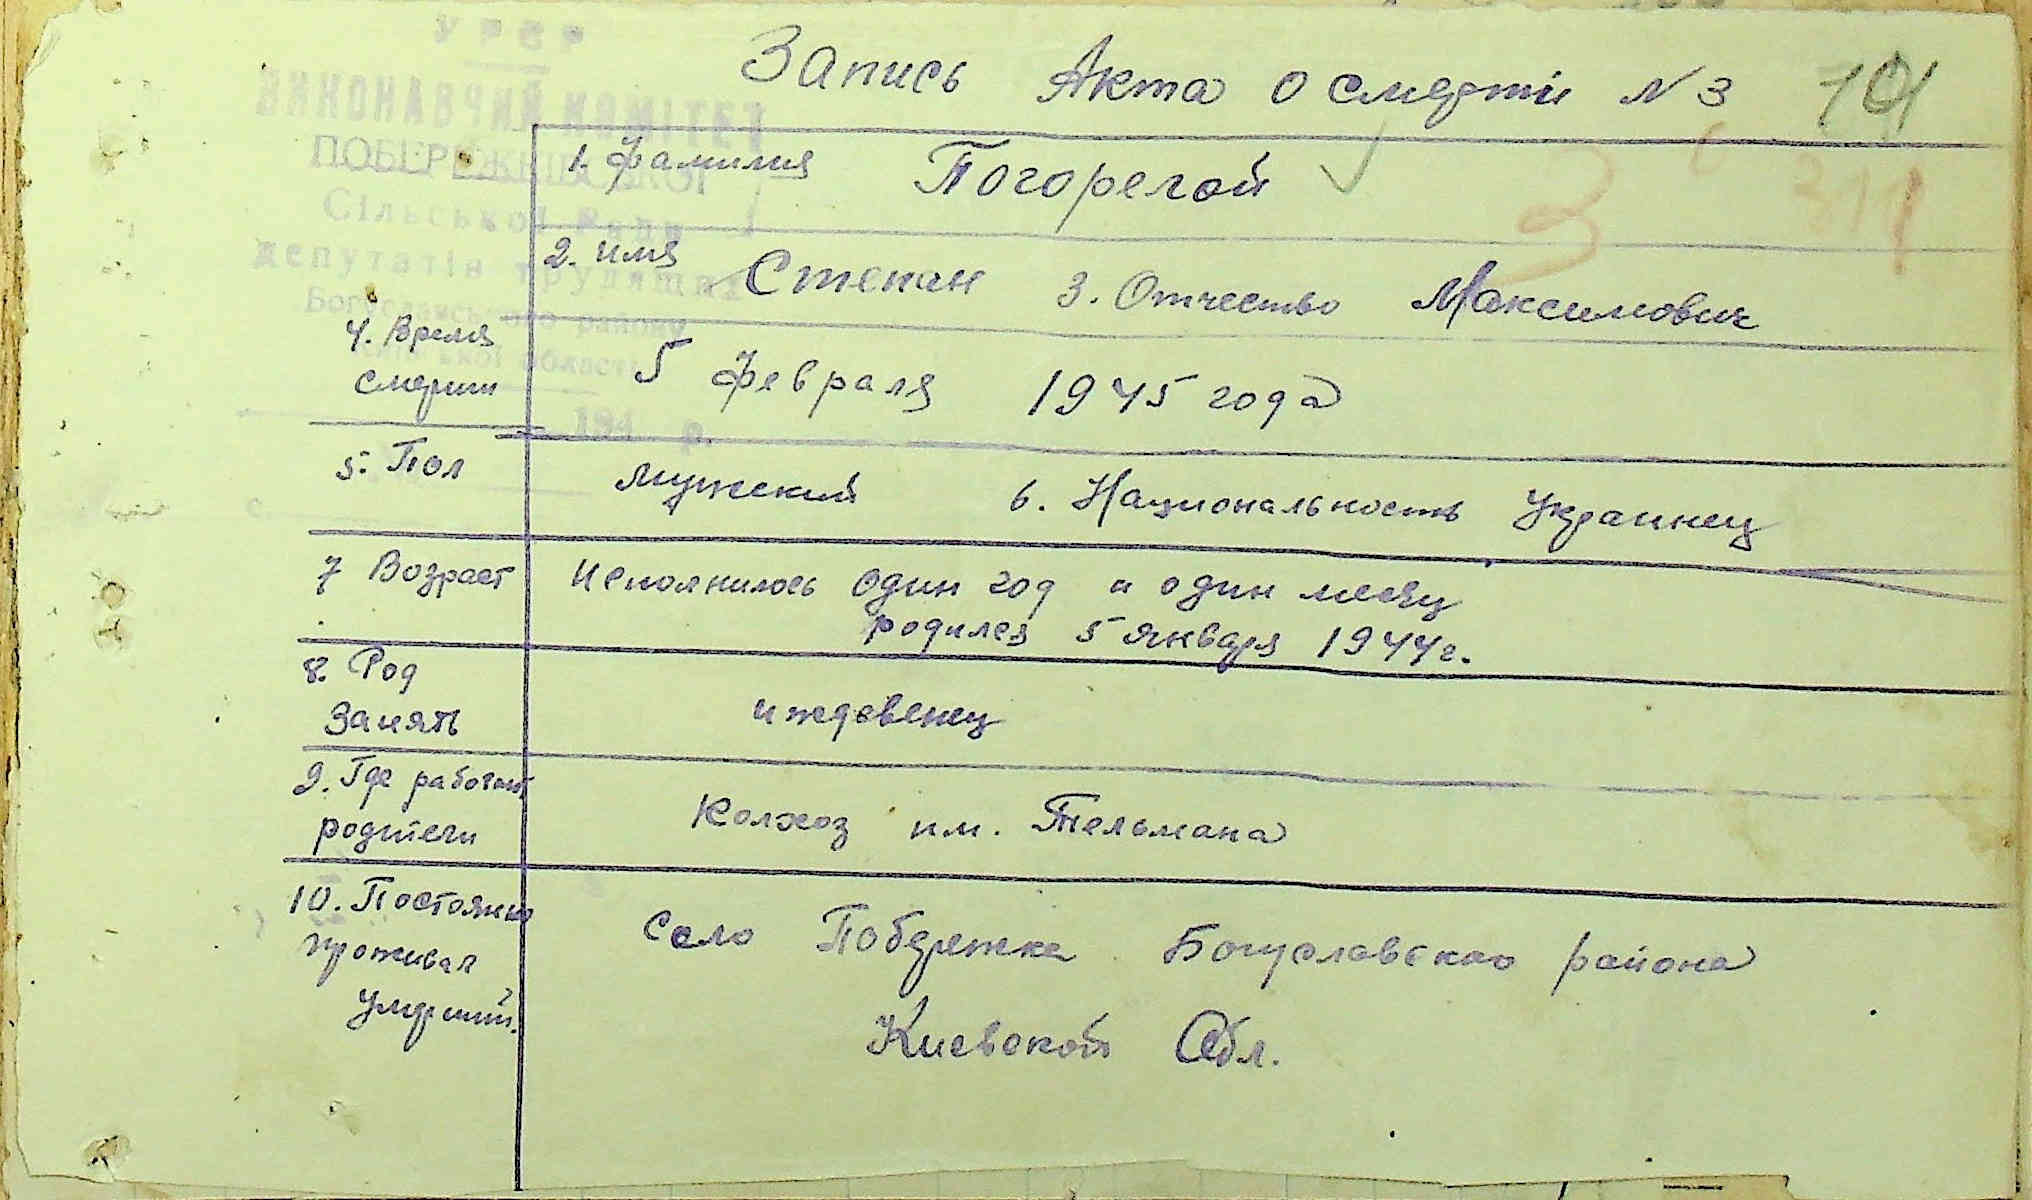 УРСР
ВИКОНАВЧИЙ КОМІТЕТ
ПОБЕРЕЖКІВСЬКОЇ
Сільської Ради
депутатів трудящих
Богуславського району
Київської області
194 р.
с.
Запись Акта о смерти N 3
1. Фамилия Погорелой
2. имя Степан 3. Отчество Максимович
4. Время
смерти 5 февраля 1945 года
5. Пол мужской 6. Национальность Украинец
7 Возраст Исполнилось один год и один месяц
родился 5 января 1944 г.
8. Род
Занять иждевенец
9. Где работают
родители Колхоз им. Тельмана
10. Постоянно
проживал
умерший. Село Побережка Богуславского района
Киевской Обл.